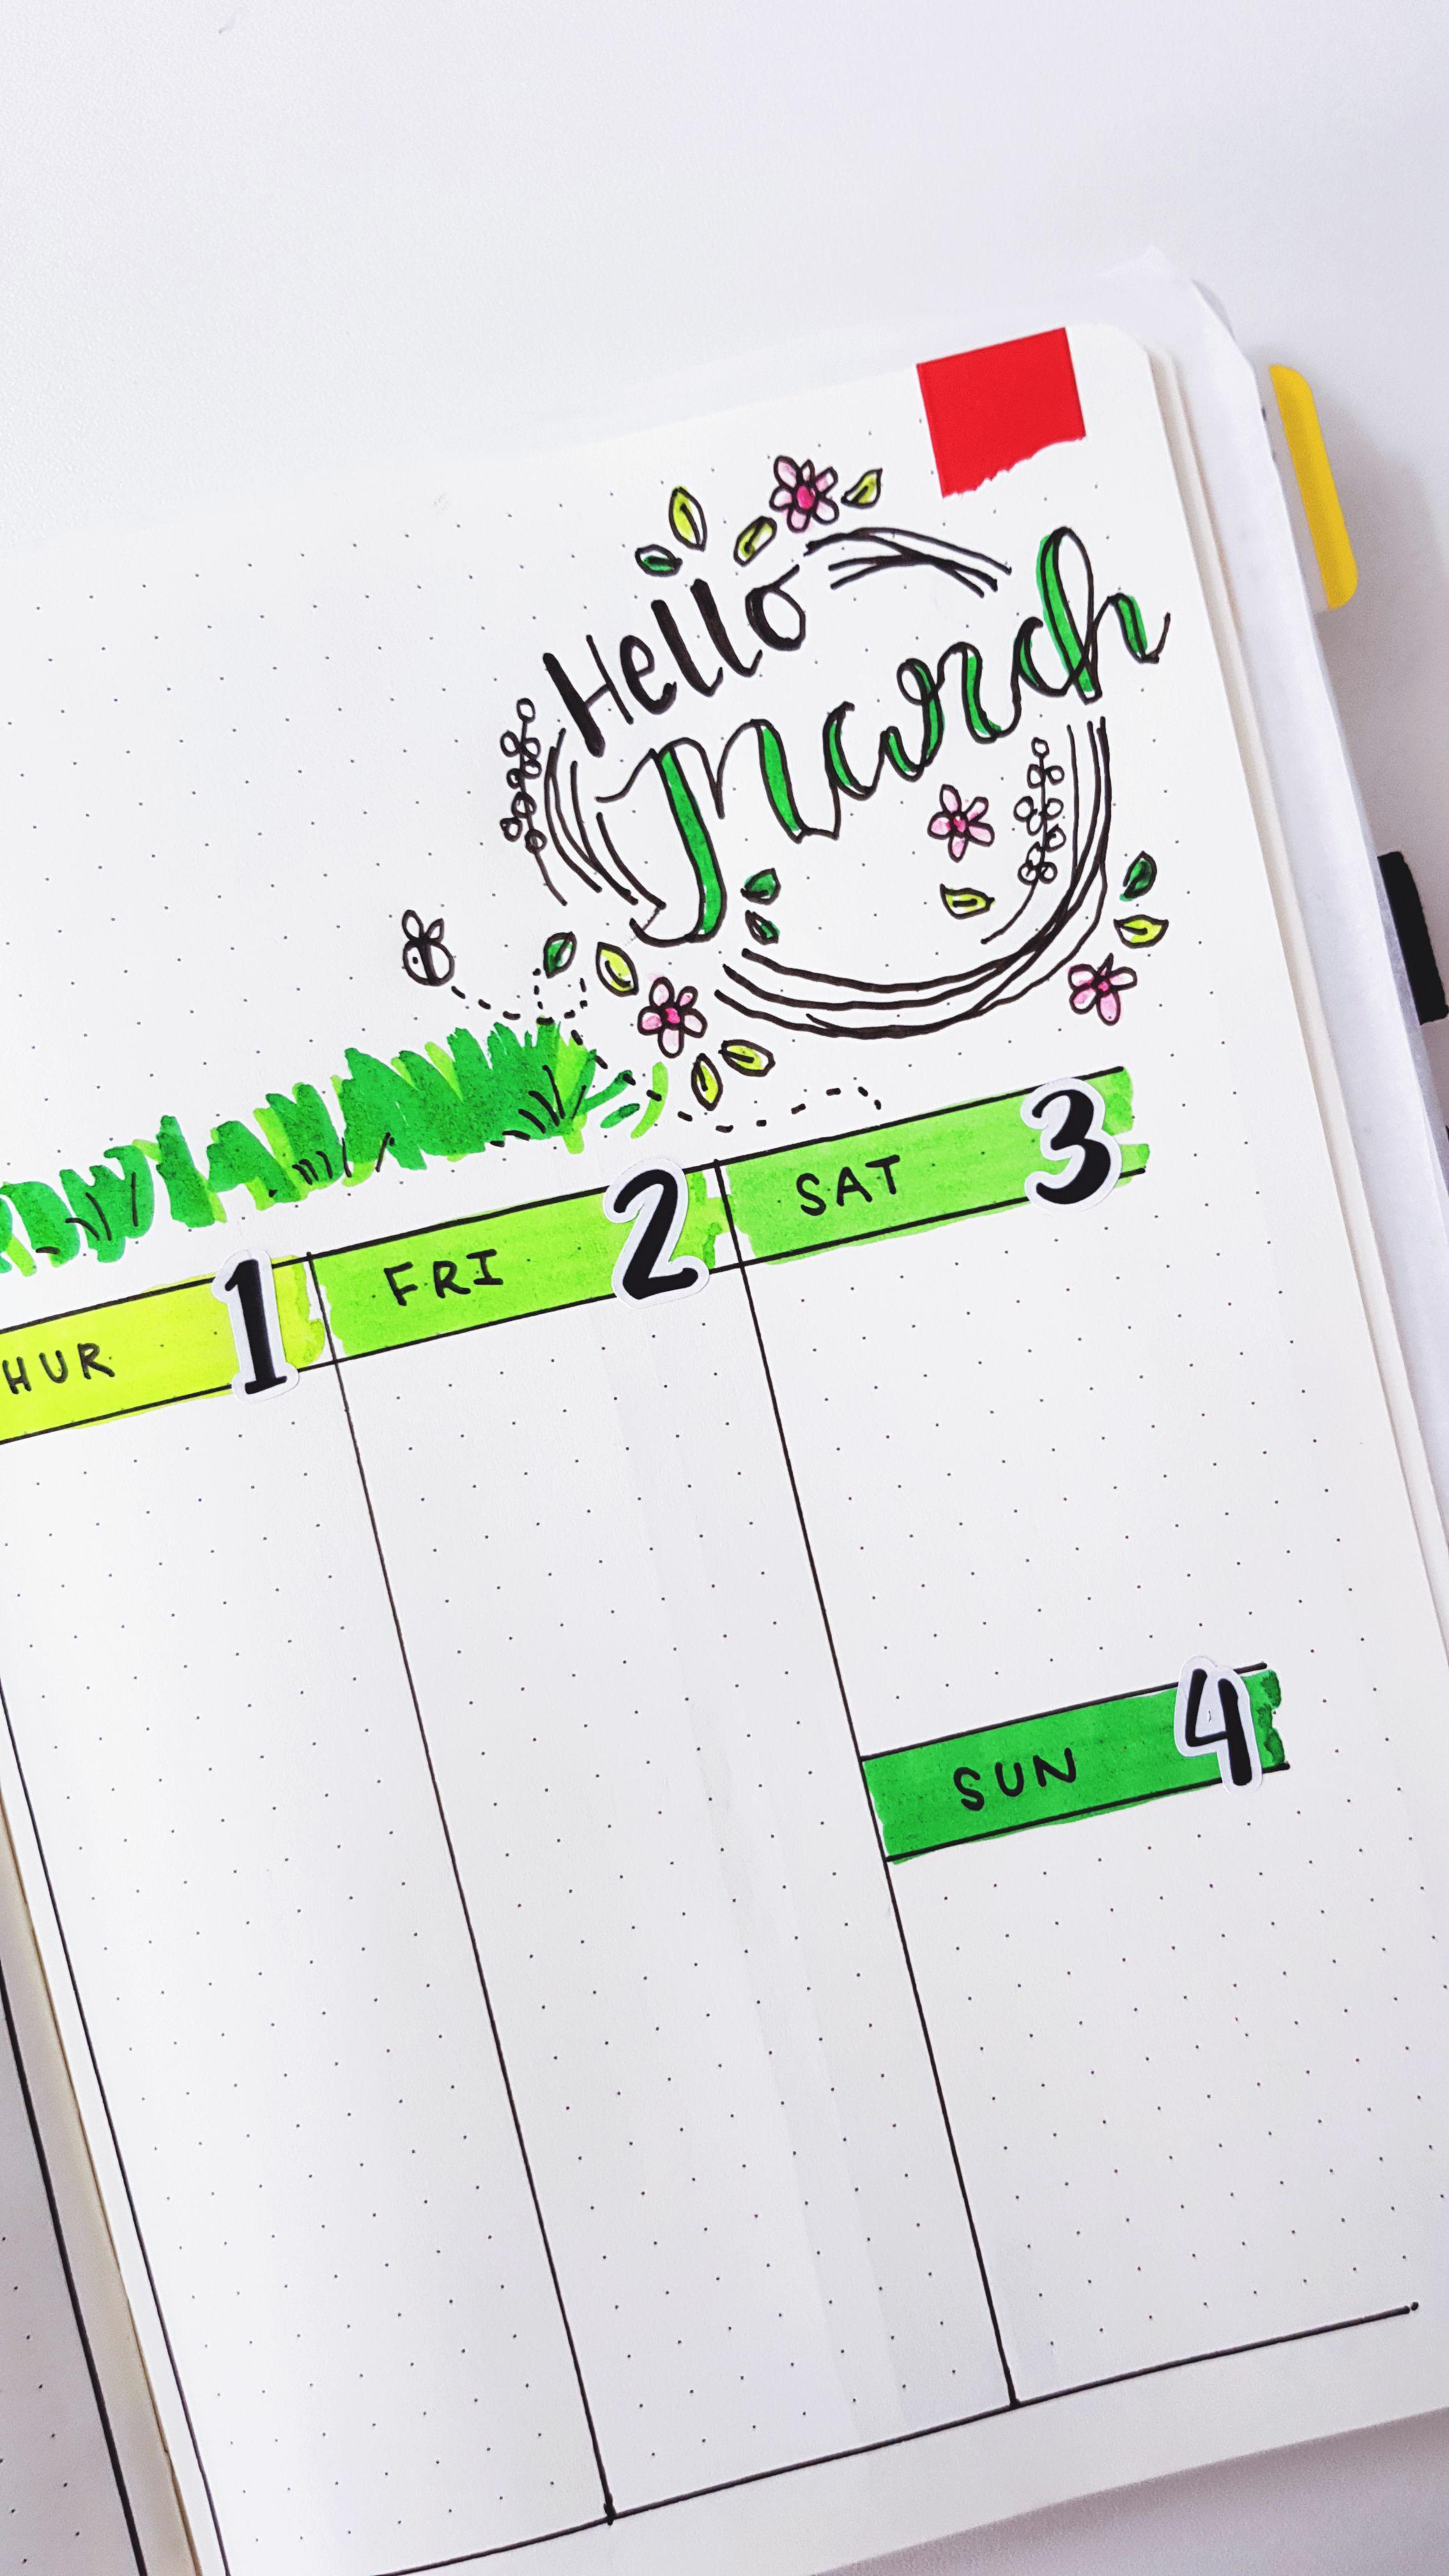 Hello
March
HUR 1
FRI 2
SAT 3
SUN 4